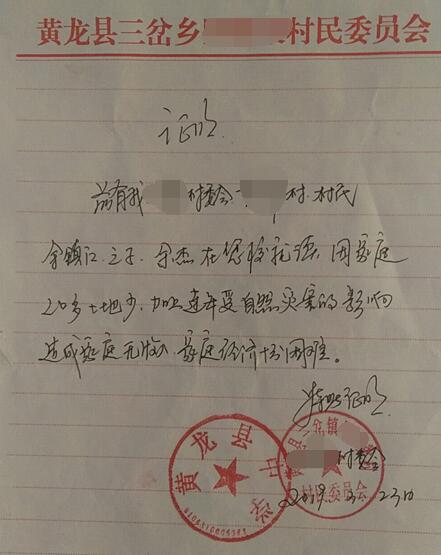 黄龙县三岔乡 村民委员会
证明
兹有我 村委会 村 村民
余镇江之子余杰在您校就读,因家庭
20多土地少,加上连年受自然灾害的影响
造成家庭无收入家庭经济十分困难。
特此证明
村委会
2019.2.23日
黄龙县
中学
黄龙县三岔镇
村民委员会